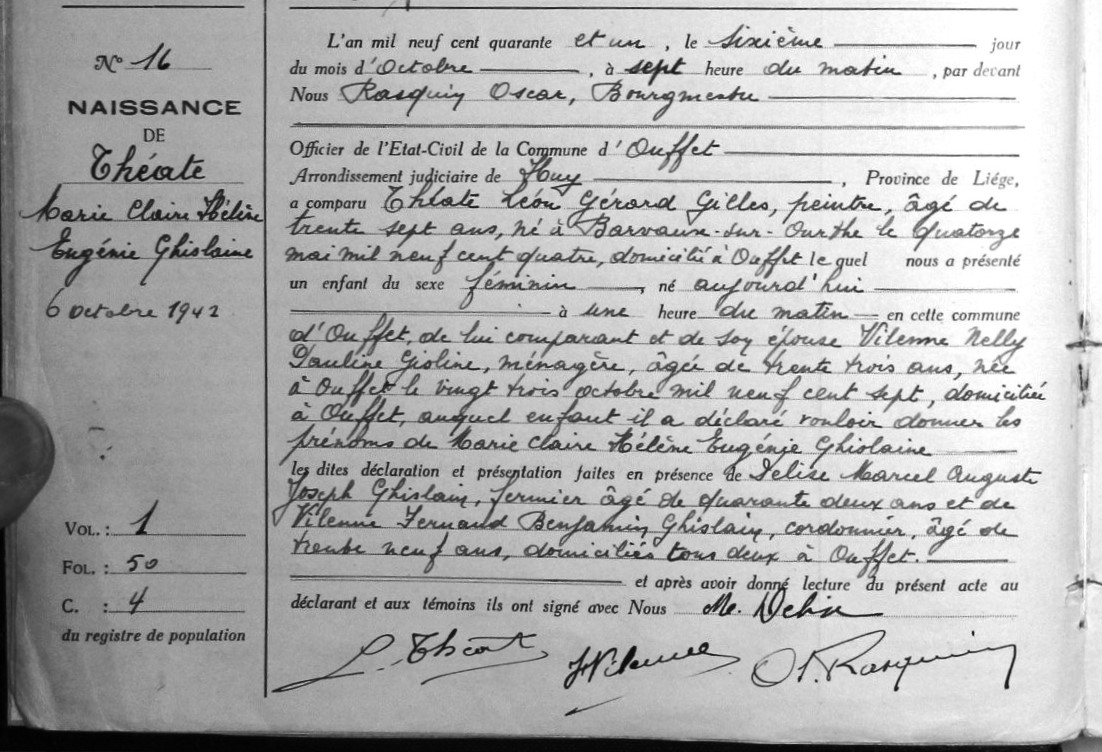 Nº 16
NAISSANCE
DE
Théate
Marie Claire Hélène
Eugénie Ghislaine
6 octobre 1942
VOL. : 1
FOL. : 50
C. : 4
du registre de population
L'an mil neuf cent quarante et un, le sixième jour
du mois d'Octobre, à sept heure du matin, par devant
Nous Rasquin Oscar, Bourgmestre
Officier de l'Etat-Civil de la Commune d'Ouffet
Arrondissement judiciaire de Huy, Province de Liége,
a comparu Théate Léon Gérard Gilles, peintre, âgé de
trente sept ans, né à Barvaux-sur-Ourthe le quatorze
mai mil neuf cent quatre, domicilié à Ouffet le quel nous a présenté
un enfant du sexe féminin, né aujourd'hui
à une heure du matin en cette commune
d'Ouffet, de lui comparant et de son épouse Vilenne Nelly
Pauline Gioline, ménagère, âgée de trente trois ans, née
à Ouffet le vingt trois octobre mil neuf cent sept, domiciliée
à Ouffet, auquel enfant il a déclaré vouloir donner les
prénoms de Marie Claire Hélène Eugénie Ghislaine
les dites déclaration et présentation faites en présence de Delise Marcel Auguste
Joseph Ghislain, fermier âgé de quarante deux ans et de
Vilenne Fernand Benjamin Ghislain, cordonnier, âgé de
trente neuf ans, domiciliés tous deux à Ouffet.
et après avoir donné lecture du présent acte au
déclarant et aux témoins ils ont signé avec Nous M. Delise
L. Théate FVilenne O. Rasquin